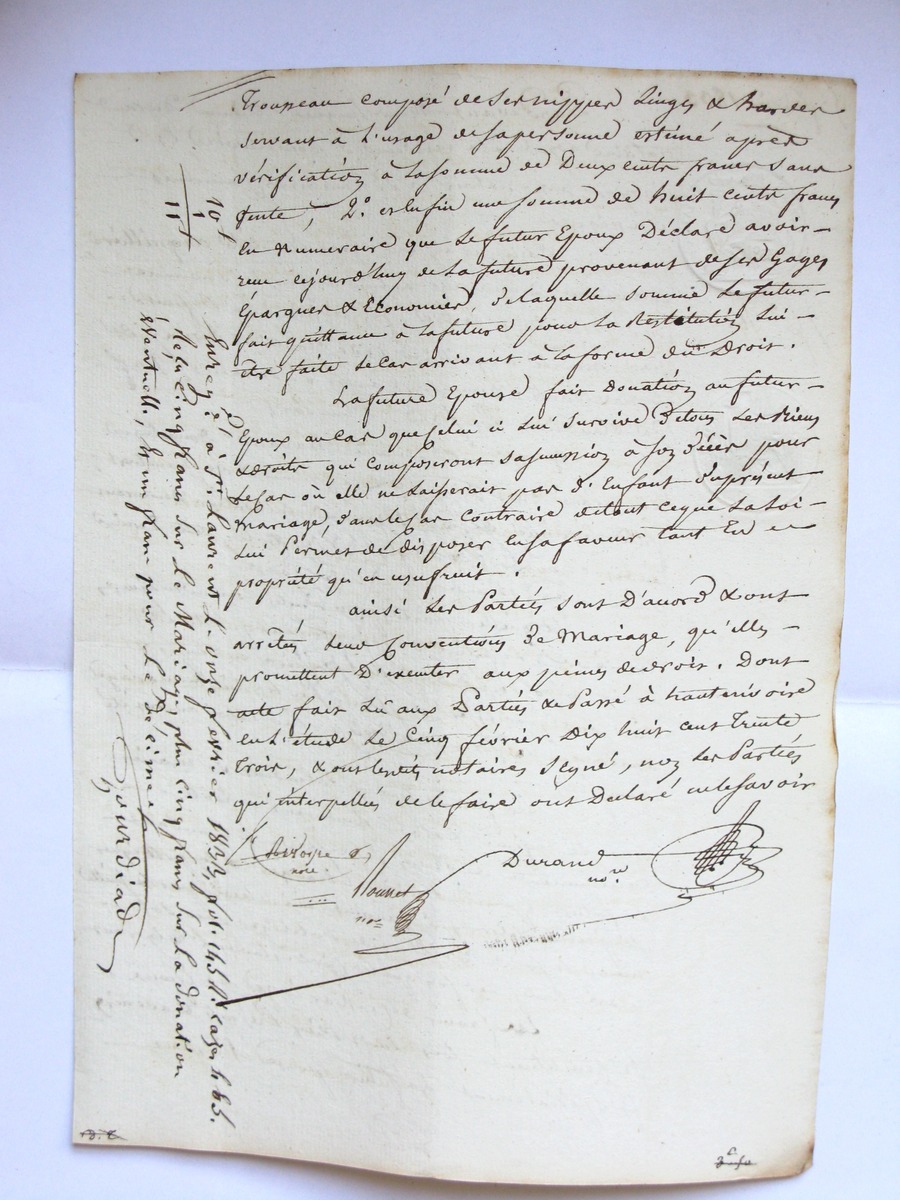 Trousseau composé de ses nippes Linges & hardes
servant à l'usage de sa personne estimé après
vérification à la somme de Deux cents francs sans
vente, 2.° et enfin une somme de huit cents francs
en numeraire que le futur Epoux Déclare avoir
reçu cejourd'huy de la future provenant de ses Gages
Épargnes & Economies, de laquelle somme Le futur
fait quittance à la future pour la Restitution lui
être faite le cas arrivant à la forme du Droit.
La future Epouse fait donation au futur
Epoux au cas que Celui ci lui survive de tous les Biens
& droits qui composeront sa succession à son décès pour
le cas où elle ne laisserait pas d'Enfant du présent
mariage, dans le cas contraire de tout ce que la Loi
Lui Permet de disposer en sa faveur tant En
propriété qu'en usufruit.
ainsi les Parties sont d'accord & ont
arrêtés leurs Conventions de mariage, qu'elles
promettent D'executer aux peines de droit. Dont
acte fait Lu aux Parties & Passé à hauterivoire
en l'étude Le Cinq février Dix huit cent Trente
Trois, & ont lesdits notaires Signé, non les Parties
qui interpellées de le faire ont Déclaré ne le savoir
nore.
Durand
nore
nore
10 f
1
11
Enreg.é à St. Laurent L'onze fevrier 1833, fol. 145 R.° cases 4 & 5.
Reçu cinq francs sur le Mariage, plus cinq francs sur La donation
éventuelle, & un franc pour le décime
Gourdiad